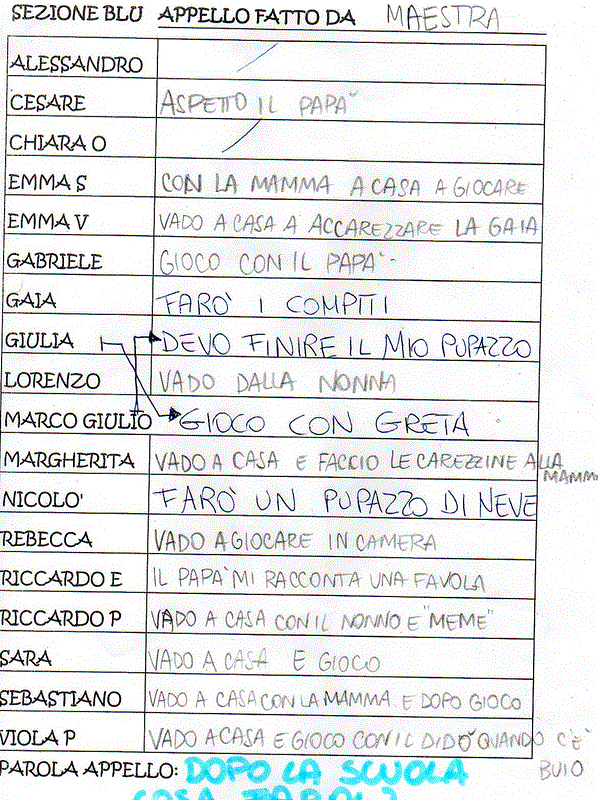 SEZIONE BLU APPELLO FATTO DA MAESTRA
ALESSANDRO
CESARE ASPETTO IL PAPA'
CHIARA O
EMMA S CON LA MAMMA A CASA A GIOCARE
EMMA V VADO A CASA A ACCAREZZARE LA GAIA
GABRIELE GIOCO CON IL PAPA'
GAIA FARO' I COMPITI
GIULIA DEVO FINIRE IL MIO PUPAZZO
LORENZO VADO DALLA NONNA
MARCO GIULIO GIOCO CON GRETA
MARGHERITA VADO A CASA E FACCIO LE CAREZZINE ALLA
MAMMA
NICOLO' FARO' UN PUPAZZO DI NEVE
REBECCA VADO A GIOCARE IN CAMERA
RICCARDO E IL PAPA' MI RACCONTA UNA FAVOLA
RICCARDO P VADO A CASA CON IL NONNO E "MEME"
SARA VADO A CASA E GIOCO
SEBASTIANO VADO A CASA CON LA MAMMA E DOPO GIOCO
VIOLA P VADO A CASA E GIOCO CON IL DIDO' QUANDO C'E'
BUIO
PAROLA APPELLO: DOPO LA SCUOLA
COSA FARAI?